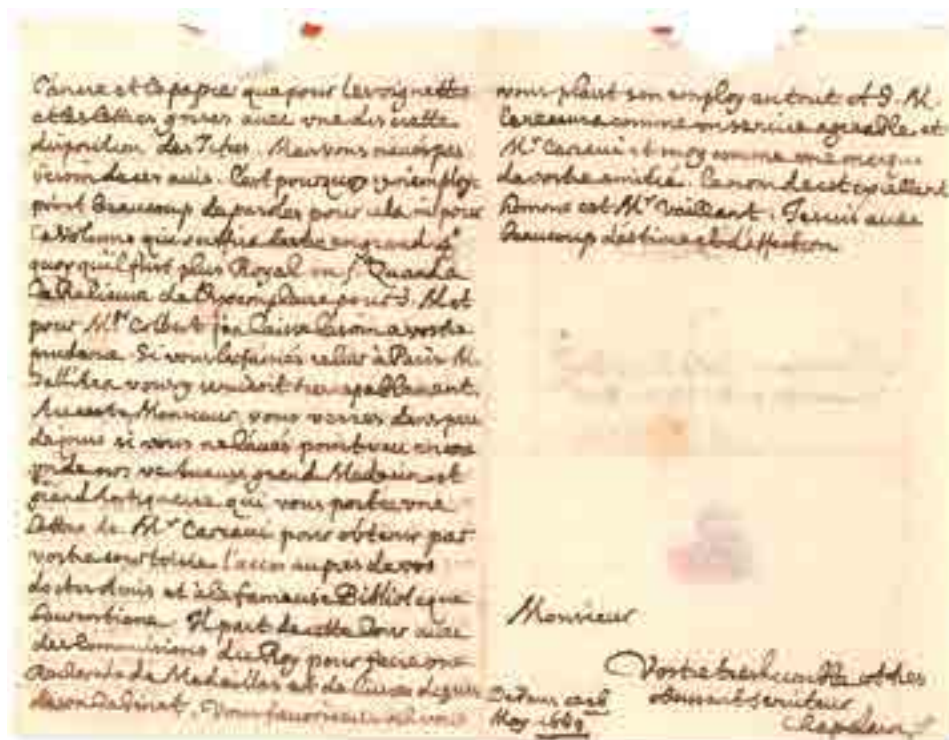 et le papier que pour les vignettes
et les lettres grises avec une discrette
disposition des Titres. Mais vous
besoin de ces avis. C'est pourquoy je n'employe
point beaucoup de paroles pour cela ni pour
le volume qui en grand 4º
quoy qu'il fust plus Royal in fº. Quand a
la Relieure de l'Exemplaire pour S. M. et
pour Mr. Colbert j'en laisse le soin a vostre
prudence. Si vous les faites relier à Paris M.
vous y serviroit
Au reste, Monsieur, vous verrés dans peu
de jours si vous ne l'avés point veu encore
un de nos grand Medecin et
grand Antiquaire qui vous porte une
lettre de Mr Carcavi pour obtenir par
vostre l'acces aupres de vos
et à la fameuse Biblioteque
Laurentiene. Il part de cette Cour avec
des Commissions du Roy pour faire une
Recherche de Medailles et de livres dignes
de son Cabinet. Vous favoriserés
vous plaist son employ en tout et S. M.
comme un service agreable et
Mr Carcavi et moy comme une marque
de vostre amitié. Le nom de cet excellent
homme est Mr Vaillant. Je suis avec
beaucoup d'estime et d'affection
Monsieur
Vostre treshumble et tres
obeissant serviteur
Chapelain
De Paris ce
May 1669